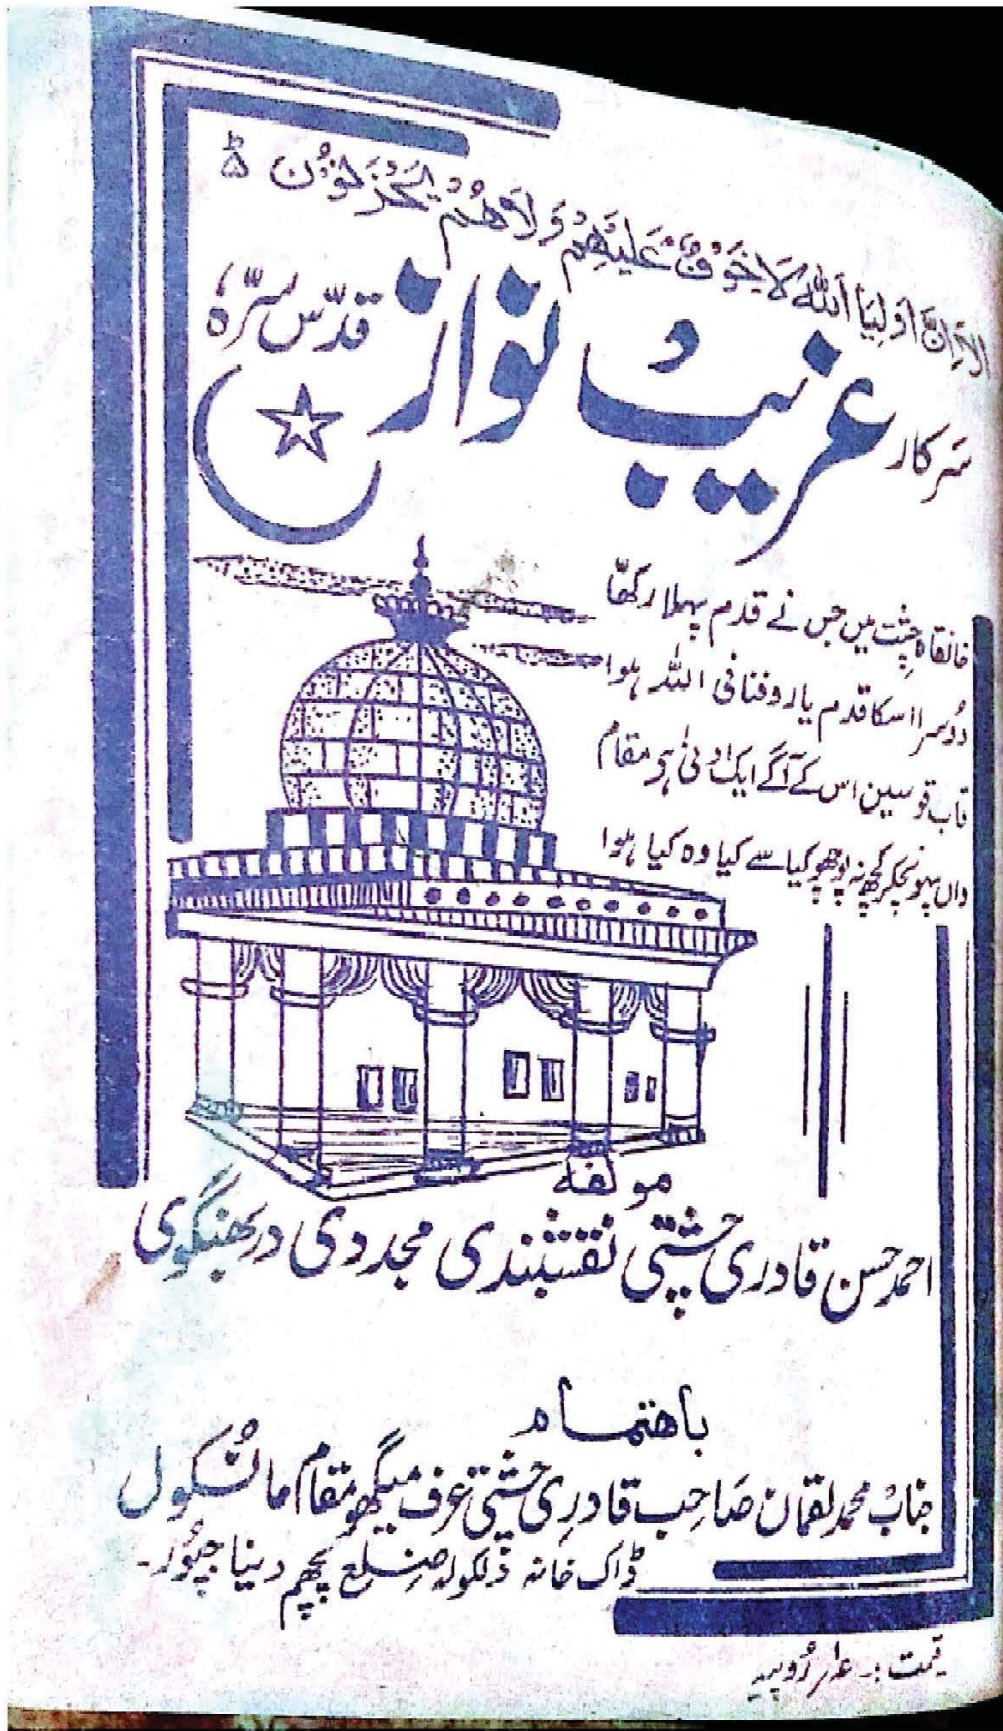 الا ان اولیا اللہ لا خوف علیہم ولا ہم یحزنون ۵
سرکار غریب نواز قدس سرہٗ
خانقاہ چشت میں جس نے قدم پہلا رکھا
دوسرا اسکا قدم یارو فنا فی اللہ ہوا
قاب قوسین اس کے آگے ایک ادنیٰ ہو مقام
واں پہونچکر کچھ نہ پوچھو کیا سے کیا وہ کیا ہوا
مولفہ
احمد حسن قادری چشتی نقشبندی مجددی دربھنگوی
باہتمام
جناب محمد لقمان صاحب قادری چشتی عرف میگھو مقام مانسکول
ڈاک خانہ دلکولہ ضلع پچھم دینا جپور۔
قیمت :۔ روپیہ